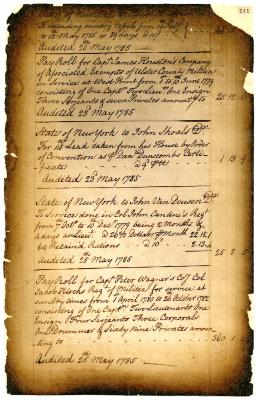 To attending sundry Vessels from
to 12th May 1785 is 49 days @
Audited 20 May 1785
Pay Roll for Capt James Houston's Company
of Associated Exempts of Ulster County Militia
for Service at West Point from 8 to 15 June 1779
consisting of One Capt Two Lieuts One Ensign
Three Serjeants & seven Privates amounts to
Audited 23d May 1785
State of New York to John Shoals Dr
For Lead taken from his House by Order
of Convention as Danl Dunscombs Certi-
ficate
1 13 9
Audited 23d May 1785
State of New York to John Van Deusen Dr
To Services done in Col John Cantine's Regt
from 7th Octr to 10 Decr 1779 being 2 Months &
4 days as Lieut @ 26⅔ Dollars ⅌ Month
64 Retained Rations @ 10d 2.13.4
25 8 5
Audited 25 May 1785
Pay Roll for Capt Peter Wagner's Coy Col
Jacob Klocks Regt of Militia for service at
sundry times from 1 April 1780 to 26 October 1782
consisting of One Capt Two Lieutenants One
Ensign Four Serjeants Three Corporals
One Drummer & Sixty Nine Privates amoun-
ting to
Audited 25th May 1785